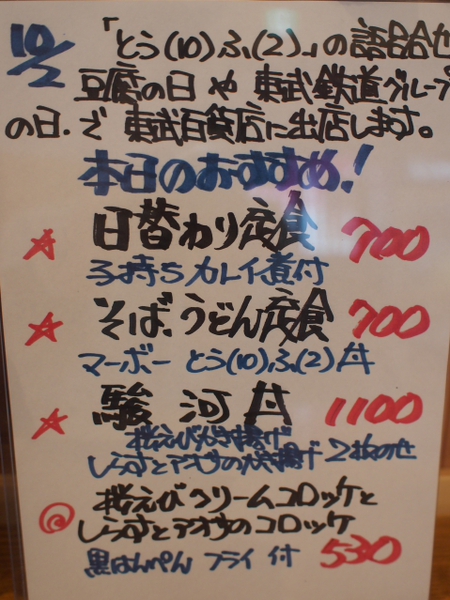 10/2 「とう(10)ふ(2)」の語呂合せ
豆腐の日や 東武鉄道グループ
の日.で 東武百貨店に出店します。
本日のおすすめ!
☆ 日替わり定食 700
子持ちカレイ煮付
☆ そば.うどん定食 700
マーボー とう(10)ふ(2)丼
☆ 駿河丼 1100
桜えびかき揚げ
しらすとアオサのかき揚げ 2枚のせ
桜えびクリームコロッケと
しらすとアオサのコロッケ
黒はんぺん フライ 付 530